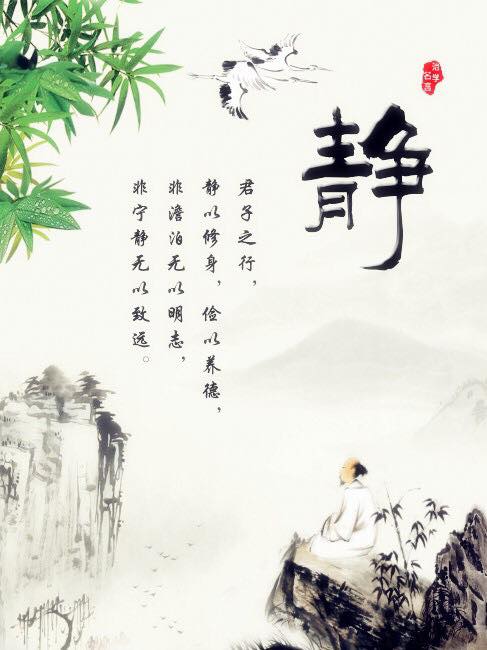 静
君子之行，
静以修身，俭以养德，
非澹泊无以明志，
非宁静无以致远。